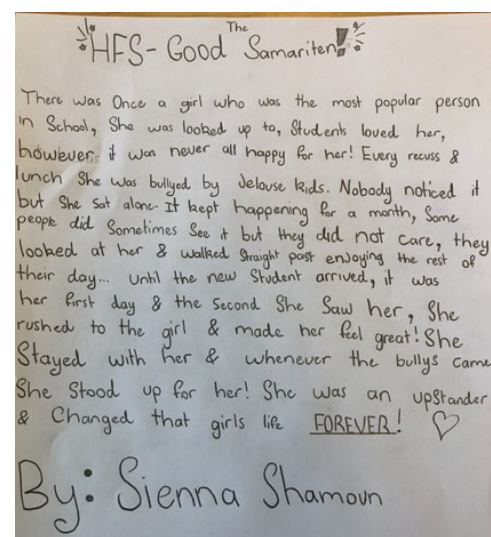 The
HFS- Good Samariten!
There was Once a girl who was the most popular person
in School, She was looked up to, Students loved her,
however it was never all happy for her! Every recuss &
lunch She was bullyed by Jelouse kids. Nobody noticed it
but She sat alone. It kept happening for a month, Some
people did Sometimes See it but they did not care, they
looked at her & walked Straight past enjoying the rest of
their day... until the new Student arrived, it was
her first day & the second She Saw her, She
rushed to the girl & made her feel great! She
Stayed with her & whenever the bullys came
She Stood up for her! She was an upStander
& Changed that girls life FOREVER!
By: Sienna Shamoun